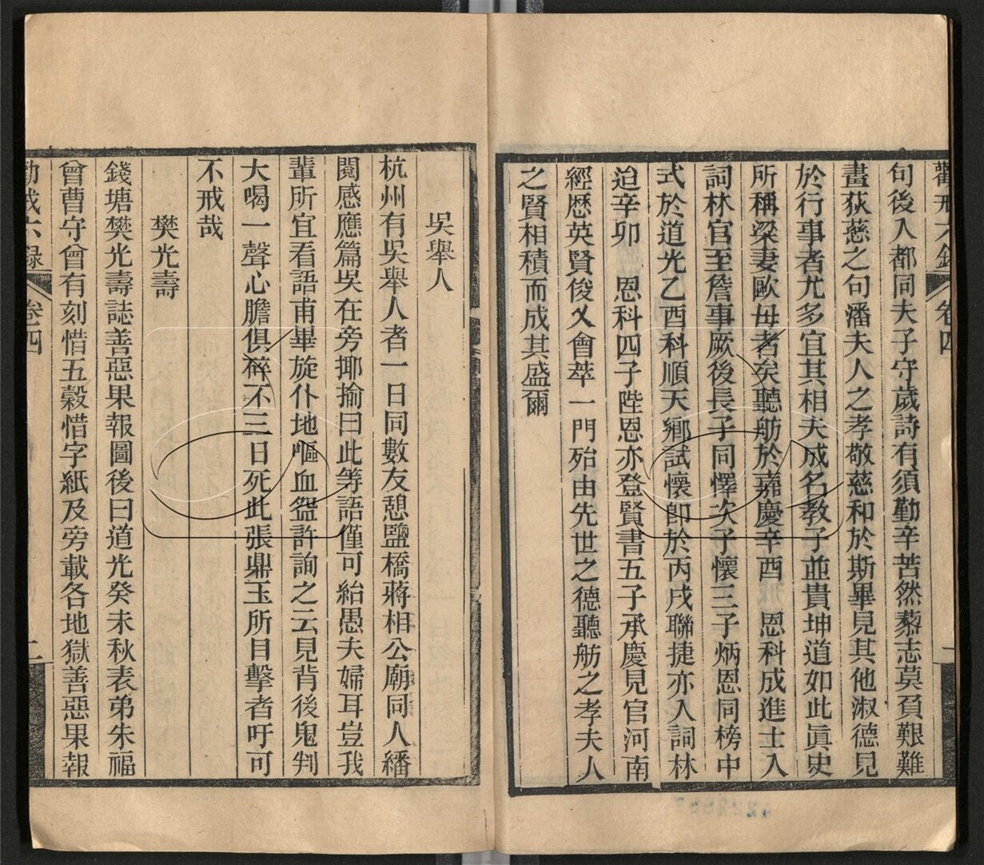 勸戒六錄 卷四
句後入都同夫子守歲詩有須勤辛苦然藜志莫負艱難
畫荻慈之句潘夫人之孝敬慈和於斯畢見其他淑德見
於行事者尤多宜其相夫成名教子並貴坤道如此眞史
所稱梁妻歐母者矣聽舫於嘉慶辛酉 恩科成進士入
詞林官至詹事厥後長子同懌次子懷三子炳恩同榜中
式於道光乙酉科順天鄉試懷卽於丙戌聯捷亦入詞林
迨辛卯 恩科四子陛恩亦登賢書五子承慶見官河南
經歷英賢俊乂會萃一門殆由先世之德聽舫之孝夫人
之賢相積而成其盛爾
吳舉人
杭州有吳舉人者一日同數友憩鹽橋蔣相公廟同人繙
閱感應篇吳在旁揶揄曰此等語僅可紿愚夫婦耳豈我
輩所宜看語甫畢旋仆地嘔血盌許詢之云見背後鬼判
大喝一聲心膽俱碎不三日死此張鼎玉所目擊者吁可
不戒哉
樊光壽
錢塘樊光壽誌善惡果報圖後曰道光癸未秋表弟朱福
曾曹守曾有刻惜五穀惜字紙及旁載各地獄善惡果報
勸戒六錄 卷四 二